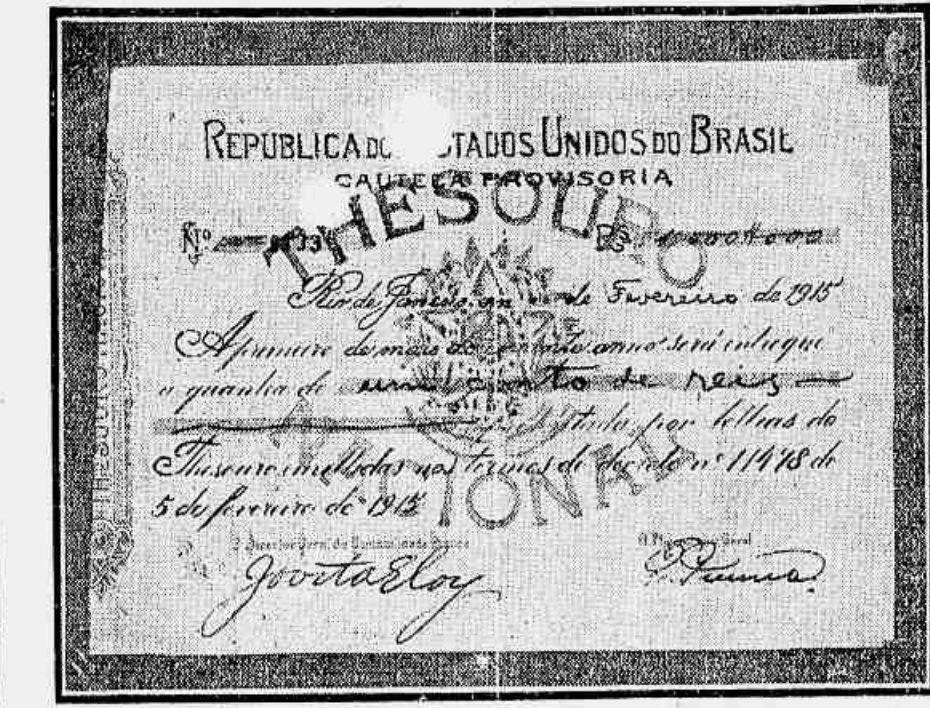 REPUBLICA ESTADOS UNIDOS DO BRASIL
CAUTELA PROVISORIA
THESOURO
Nº Rs
Rio de Janeiro, em de Fevereiro de 1915
A primeiro de março do anno será entregue
a quantia de um conto de reis
por lettras do
Thesouro emittidas nos termos do decreto nº 11478 de
5 de fevereiro de 1915
NACIONAL
O Director Geral da Contabilidade Publica
Jovita Eloy
Geral